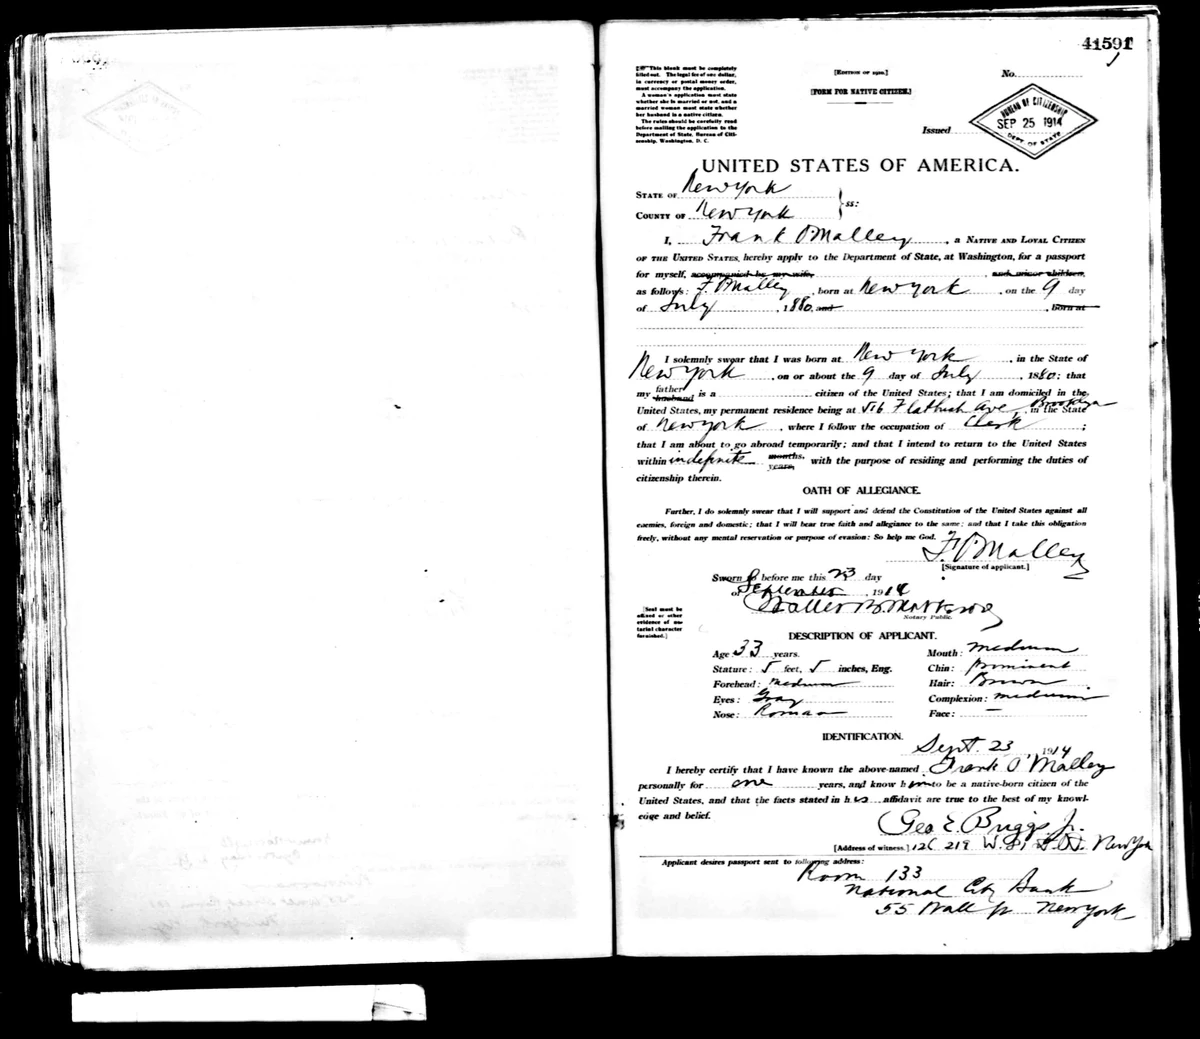 41591
[☞This blank must be completely
filled out. The legal fee of one dollar,
in currency or postal money order,
must accompany the application.
A woman's application must state
whether she is married or not, and a
married woman must state whether
her husband is a native citizen.
The rules should be carefully read
before mailing the application to the
Department of State, Bureau of Citi-
zenship, Washington, D. C.
[EDITION OF 1910.]
[FORM FOR NATIVE CITIZEN.]
No.
Issued
BUREAU OF CITIZENSHIP
SEP 25 1914
DEPT. OF STATE
UNITED STATES OF AMERICA.
STATE OF New York
COUNTY OF New York
ss:
I, Frank O'Malley, a NATIVE AND LOYAL CITIZEN
OF THE UNITED STATES, hereby apply to the Department of State, at Washington, for a passport
for myself, accompanied by my wife, and minor children,
as follows: F. O'Malley, born at New York, on the 9 day
of July, 1880, and, born at
I solemnly swear that I was born at New York, in the State of
New York, on or about the 9 day of July, 1880; that
my father husband is a citizen of the United States; that I am domiciled in the
United States, my permanent residence being at 516 Flatbush Ave, Brooklyn in the State
of New York, where I follow the occupation of Clerk;
that I am about to go abroad temporarily; and that I intend to return to the United States
within indefinite months, years, with the purpose of residing and performing the duties of
citizenship therein.
OATH OF ALLEGIANCE.
Further, I do solemnly swear that I will support and defend the Constitution of the United States against all
enemies, foreign and domestic; that I will bear true faith and allegiance to the same; and that I take this obligation
freely, without any mental reservation or purpose of evasion: So help me God.
F. O'Malley
[Signature of applicant.]
Sworn to before me this 23 day
of September 1914
Walter B.
Notary Public.
[Seal must be
affixed or other
evidence of no-
tarial character
furnished.]
DESCRIPTION OF APPLICANT.
Age: 33 years.
Stature: 5 feet, 5 inches, Eng.
Forehead: Medium
Eyes: Gray
Nose: Roman
Mouth: medium
Chin: Prominent
Hair: Brown
Complexion: medium
Face: —
IDENTIFICATION.
Sept. 23 1914
I hereby certify that I have known the above-named Frank O'Malley
personally for one years, and know him to be a native-born citizen of the
United States, and that the facts stated in his affidavit are true to the best of my knowl-
edge and belief.
Geo E. Briggs Jr.
[Address of witness.] 219 W. 81 St. N. New York
Applicant desires passport sent to following address:
Room 133
National City Bank
55 Wall St New York